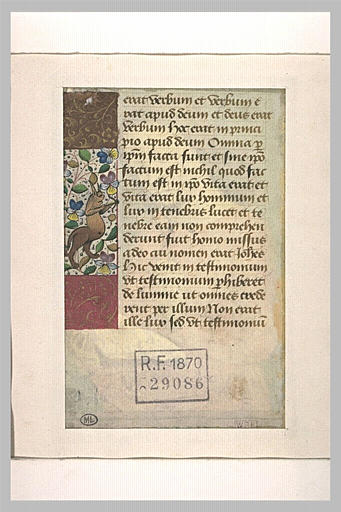 erat verbum et verbum e
rat apud deum et deus erat
verbum Hoc erat in princi
pio apud deum Omnia p
ipm facta sunt et sine ipo
factum est nichil quod fac
tum est in ipo vita erat et
vita erat lux hominum et
lux in tenebris lucet et te
nebre eam non comprehen
derunt fuit homo missus
a deo cui nomen erat Johes
hic venit in testimonium
vt testimonium phiberet
de lumine vt omnes crede
rent per illum Non erat
ille lux sed vt testimoniū
R.F. 1870
29086
ML